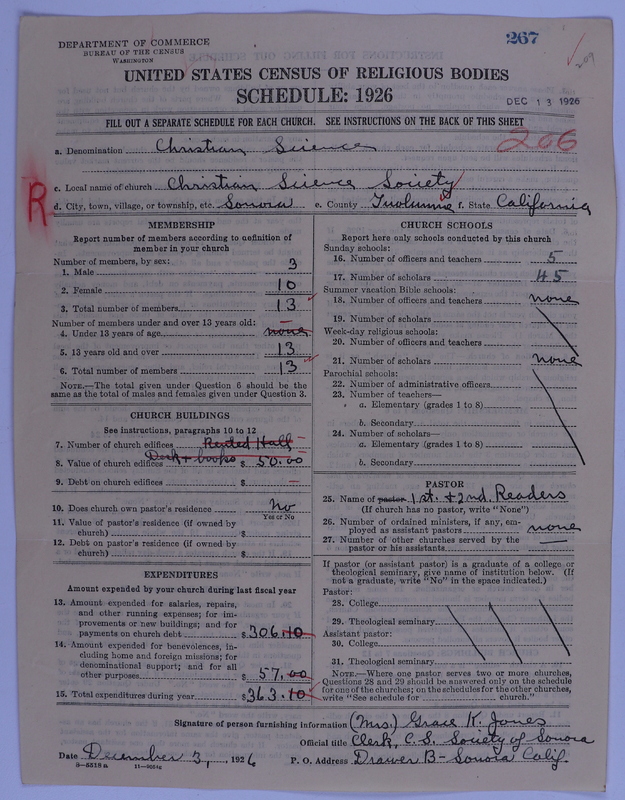 267
209
DEPARTMENT OF COMMERCE
BUREAU OF THE CENSUS
WASHINGTON
UNITED STATES CENSUS OF RELIGIOUS BODIES
SCHEDULE: 1926
DEC 13 1926
FILL OUT A SEPARATE SCHEDULE FOR EACH CHURCH. SEE INSTRUCTIONS ON THE BACK OF THIS SHEET
266
a. Denomination Christian Science
c. Local name of church Christian Science Society
R
d. City, town, village, or township, etc. Sonora e. County Tuolumne f. State California
MEMBERSHIP
Report number of members according to definition of member in your church
Number of members, by sex:
1. Male 3
2. Female 10
3. Total number of members 13
Number of members under and over 13 years old:
4. Under 13 years of age none
5. 13 years old and over 13
6. Total number of members 13
NOTE.—The total given under Question 6 should be the
same as the total of males and females given under Question 3.
CHURCH BUILDINGS
See instructions, paragraphs 10 to 12
7. Number of church edifices Rented Hall
Desk + books
8. Value of church edifices $ 50.00
9. Debt on church edifices $ —
10. Does church own pastor's residence No
Yes or No
11. Value of pastor's residence (if owned by
church) $
12. Debt on pastor's residence (if owned by
church) $
EXPENDITURES
Amount expended by your church during last fiscal year
13. Amount expended for salaries, repairs,
and other running expenses; for im-
provements or new buildings; and for
payments on church debt $306.10
14. Amount expended for benevolences, in-
cluding home and foreign missions; for
denominational support; and for all
other purposes $ 57.00
15. Total expenditures during year $363.10
CHURCH SCHOOLS
Report here only schools conducted by this church
Sunday schools:
16. Number of officers and teachers 5
17. Number of scholars 45
Summer vacation Bible schools:
18. Number of officers and teachers none
19. Number of scholars
Week-day religious schools:
20. Number of officers and teachers
21. Number of scholars none
Parochial schools:
22. Number of administrative officers
23. Number of teachers—
a. Elementary (grades 1 to 8)
b. Secondary
24. Number of scholars—
a. Elementary (grades 1 to 8)
b. Secondary
PASTOR
25. Name of pastor 1st. + 2nd. Readers
(If church has no pastor, write "None")
26. Number of ordained ministers, if any, em-
ployed as assistant pastors none
27. Number of other churches served by the
pastor or his assistants —
If pastor (or assistant pastor) is a graduate of a college or
theological seminary, give name of institution below. (If
not a graduate, write "No" in the space indicated.)
Pastor:
28. College
29. Theological seminary
Assistant pastor:
30. College
31. Theological seminary
NOTE.—Where one pastor serves two or more churches,
Questions 28 and 29 should be answered only on the schedule
for one of the churches; on the schedules for the other churches,
write "See schedule for church."
Signature of person furnishing information (Mrs) Grace K. Jones
Official title Clerk, C. S. Society of Sonora
Date December 3, 1926 P. O. Address Drawer B - Sonora Calif.
8—5318a 11—9054c